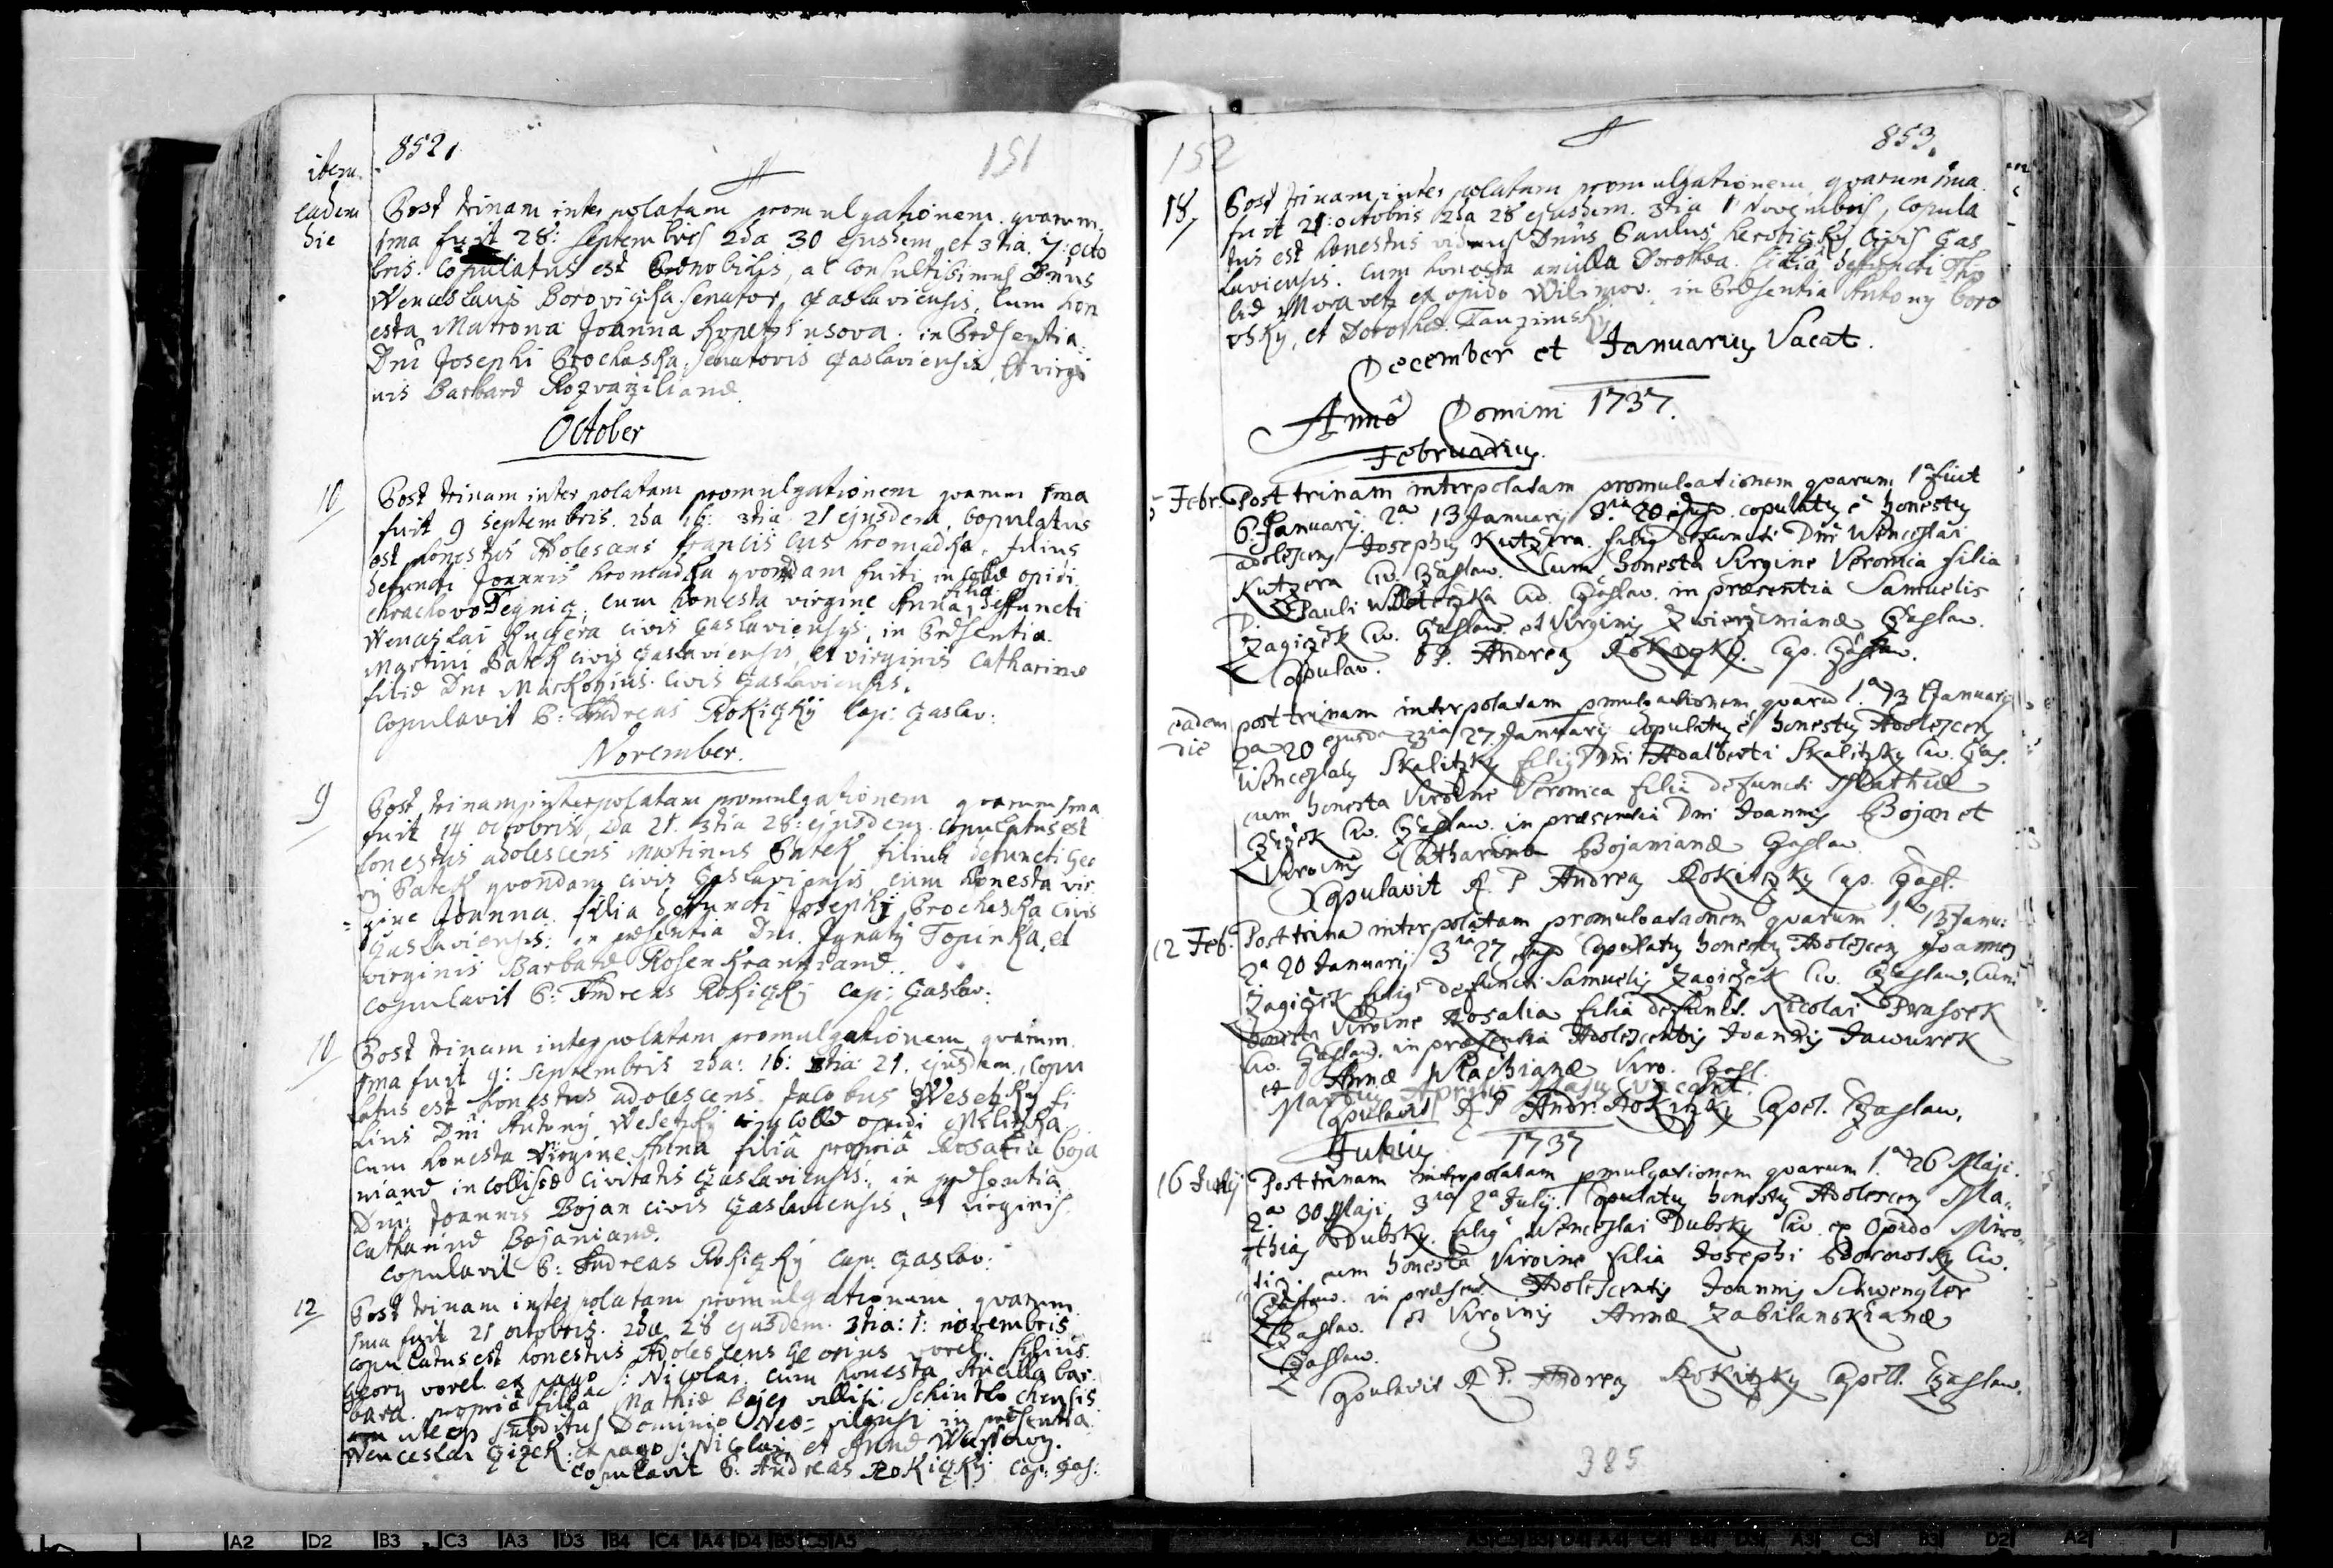 852.
151
item
eadem
die
Post trinam interpolatam promulgationem quarum
1ma fuit 28: Septembris 2da 30 ejusdem et 3tia 7: Octo
bris. Copulatus est Prænobilis, ac Consultissimus Dnus
Wenceslaus Borovička Senator Czaslaviensis, cum hon
esta Matrona Joanna in Præsentia
Dni Josephi Prochaska, Senatoris Czaslaviensis, et virgi
nis Barbaræ
October
10 Post trinam interpolatam promulgationem quarum 1ma
fuit 9 Septembris. 2da 16: 3tia 21 ejusdem, Copulatus
est honestus Adolescens Franciscus Hromadka, filius
defuncti Joannis Hromadka quondam opidi
cum honesta virgine Anna filia deffuncti
Wenceslai Kuczera civis Czaslaviensis, in Præsentia
Martini Patek civis Czaslaviensis, et virginis Catharinæ
filiæ Dni civis Czaslaviensis.
Copulavit P: Andreas Rokiczky Cap: Czaslav:
November.
9 Post trinam interpolatam promulgationem quarum 1ma
fuit 14 octobris, 2da 21. 3tia 28: ejusdem. Copulatus est
honestus adolescens Martinus Patek, filius defuncti Geo
rÿ Patek quondam civis Czaslaviensis, cum honesta vir
gine Joanna. filia defuncti Josephi Prochaska civis
Czaslaviensis: in præsentia Dni Ignatÿ Topinka, et
virginis Barbaræ
Copulavit P: Andreas Rokiczky Cap: Czaslav:
10 Post trinam interpolatam promulgationem quarum
1ma fuit 9: Septembris 2da: 16: 3tia: 21. ejusdem, Copu
latus est honestus adolescens Jacobus Wesetzky fi
lius Dni Antonÿ Wesetzky opidi
cum honesta virgine Anna filia propria Rosalia Boja
nianæ in civitatis Czaslaviensis, in præsentia
Dni: Joannis Bojan civis Czaslaviensis, et virginis
Catharinæ Bojanianæ.
Copulavit P: Andreas Rokiczky Cap: Czaslav:
12 Post trinam interpolatam promulgationem quarum
1ma fuit 21 octobris. 2da 28 ejusdem. 3tia: 1: novembris
Copulatus est honestus Adolescens Georius vorel. filius
Georÿ vorel ex pago S: Nicolai. cum honesta Ancilla bar
bara. propria filia Mathiæ
subditus Dominio in præsentia
Wenceslai Czizek: ex pago S: Nicolai, et Annæ
Copulavit P: Andreas Rokiczky Cap: Czas:
152
853.
18 Post trinam interpolatam promulgationem, quarum 1ma
fuit 21: octobris 2da 28 ejusdem. 3tia 1 Novembris, Copula
tus est honestus viduus Dnus Paulus civis Czas
laviensis. Cum honesta ancilla Dorothea. filia defuncti Tho
Moravetz ex opido Wilimov. in Præsentia Antonÿ Boro
vsky, et Dorotheæ
December et Januarius Vacat.
Anno Domini 1737.
Februarius.
5 Febr. Post trinam interpolatam promulgationem quarum 1a fuit
6 Januarÿ. 2a 13 Januarÿ 3ia 20 copulatus ê honestus
adolescens Josephus Kutzera filius defuncti Dni Wenceslai
Kutzera Civ. Czaslaw. Cum honesta Virgine Veronica filia
D. Pauli Civ. Czaslaw. in præsentia Samuelis
Zagiczek Civ. Czaslaw. et Virginis Czaslaw.
Copulav. P. Andreas Rokiczky. Cap. Czaslaw.
eadem
die
post trinam interpolatam pmulgationem quarum 1a 13 Januarÿ
2a 20 ejusdem 3ia 27. Januarÿ copulatus ê honestus Adolescens
Wenceslaus Skalitzky filius Dni Adalberti Skalitzky Civ. Czas.
cum honesta Virgine Veronica filia defuncti Mathiæ
Czizek Civ. Czaslaw. in præsentia Dni Joannis Bojan et
Virginis Catharinæ Bojanianæ Czaslaw.
Copulavit R. P Andreas Rokitzky Cap. Czasl.
12 Feb. Post trina interpolatam promulgationem quarum 1a 13 Janu:
2a 20 Januarÿ 3ia 27 Copulatus honestus Adolescens Joannes
Zagiczek filius defuncti Samuelis Zagiczek Civ. Czaslaw. Cum
honesta Virgine Rosalia filia defunct. Nicolai
Civ. Czaslaw. in præsentia Adolescentis Joannis Jawurek
et Annæ Virg. Czasl.
Martius Aprilis Majus vacant
Copulavit R. P Andr. Rokitzky Capel. Czaslaw.
1737
16 Post trinam interpolatam pmulgationem quarum 1a 26 Maji.
2a 30 Maji, 3ia 2a Copulatus honestus Adolescens Ma
thias Dubsky. filius Wenceslai Dubsky Civ. ex Opido
cum honesta Virgine filia Josephi Civ.
Czaslaw. in præsent. Adolescentis Joannis Schwengler
Czaslav. et Virginis Annæ
Czaslaw.
Copulavit R. P. Andreas Rokitzky Capell. Czaslaw.
385
A2 D2 B3 C3 A3 D3 B4 C4 A4 D4 B5 C5 A5
A3 C3 B3 D2 A2